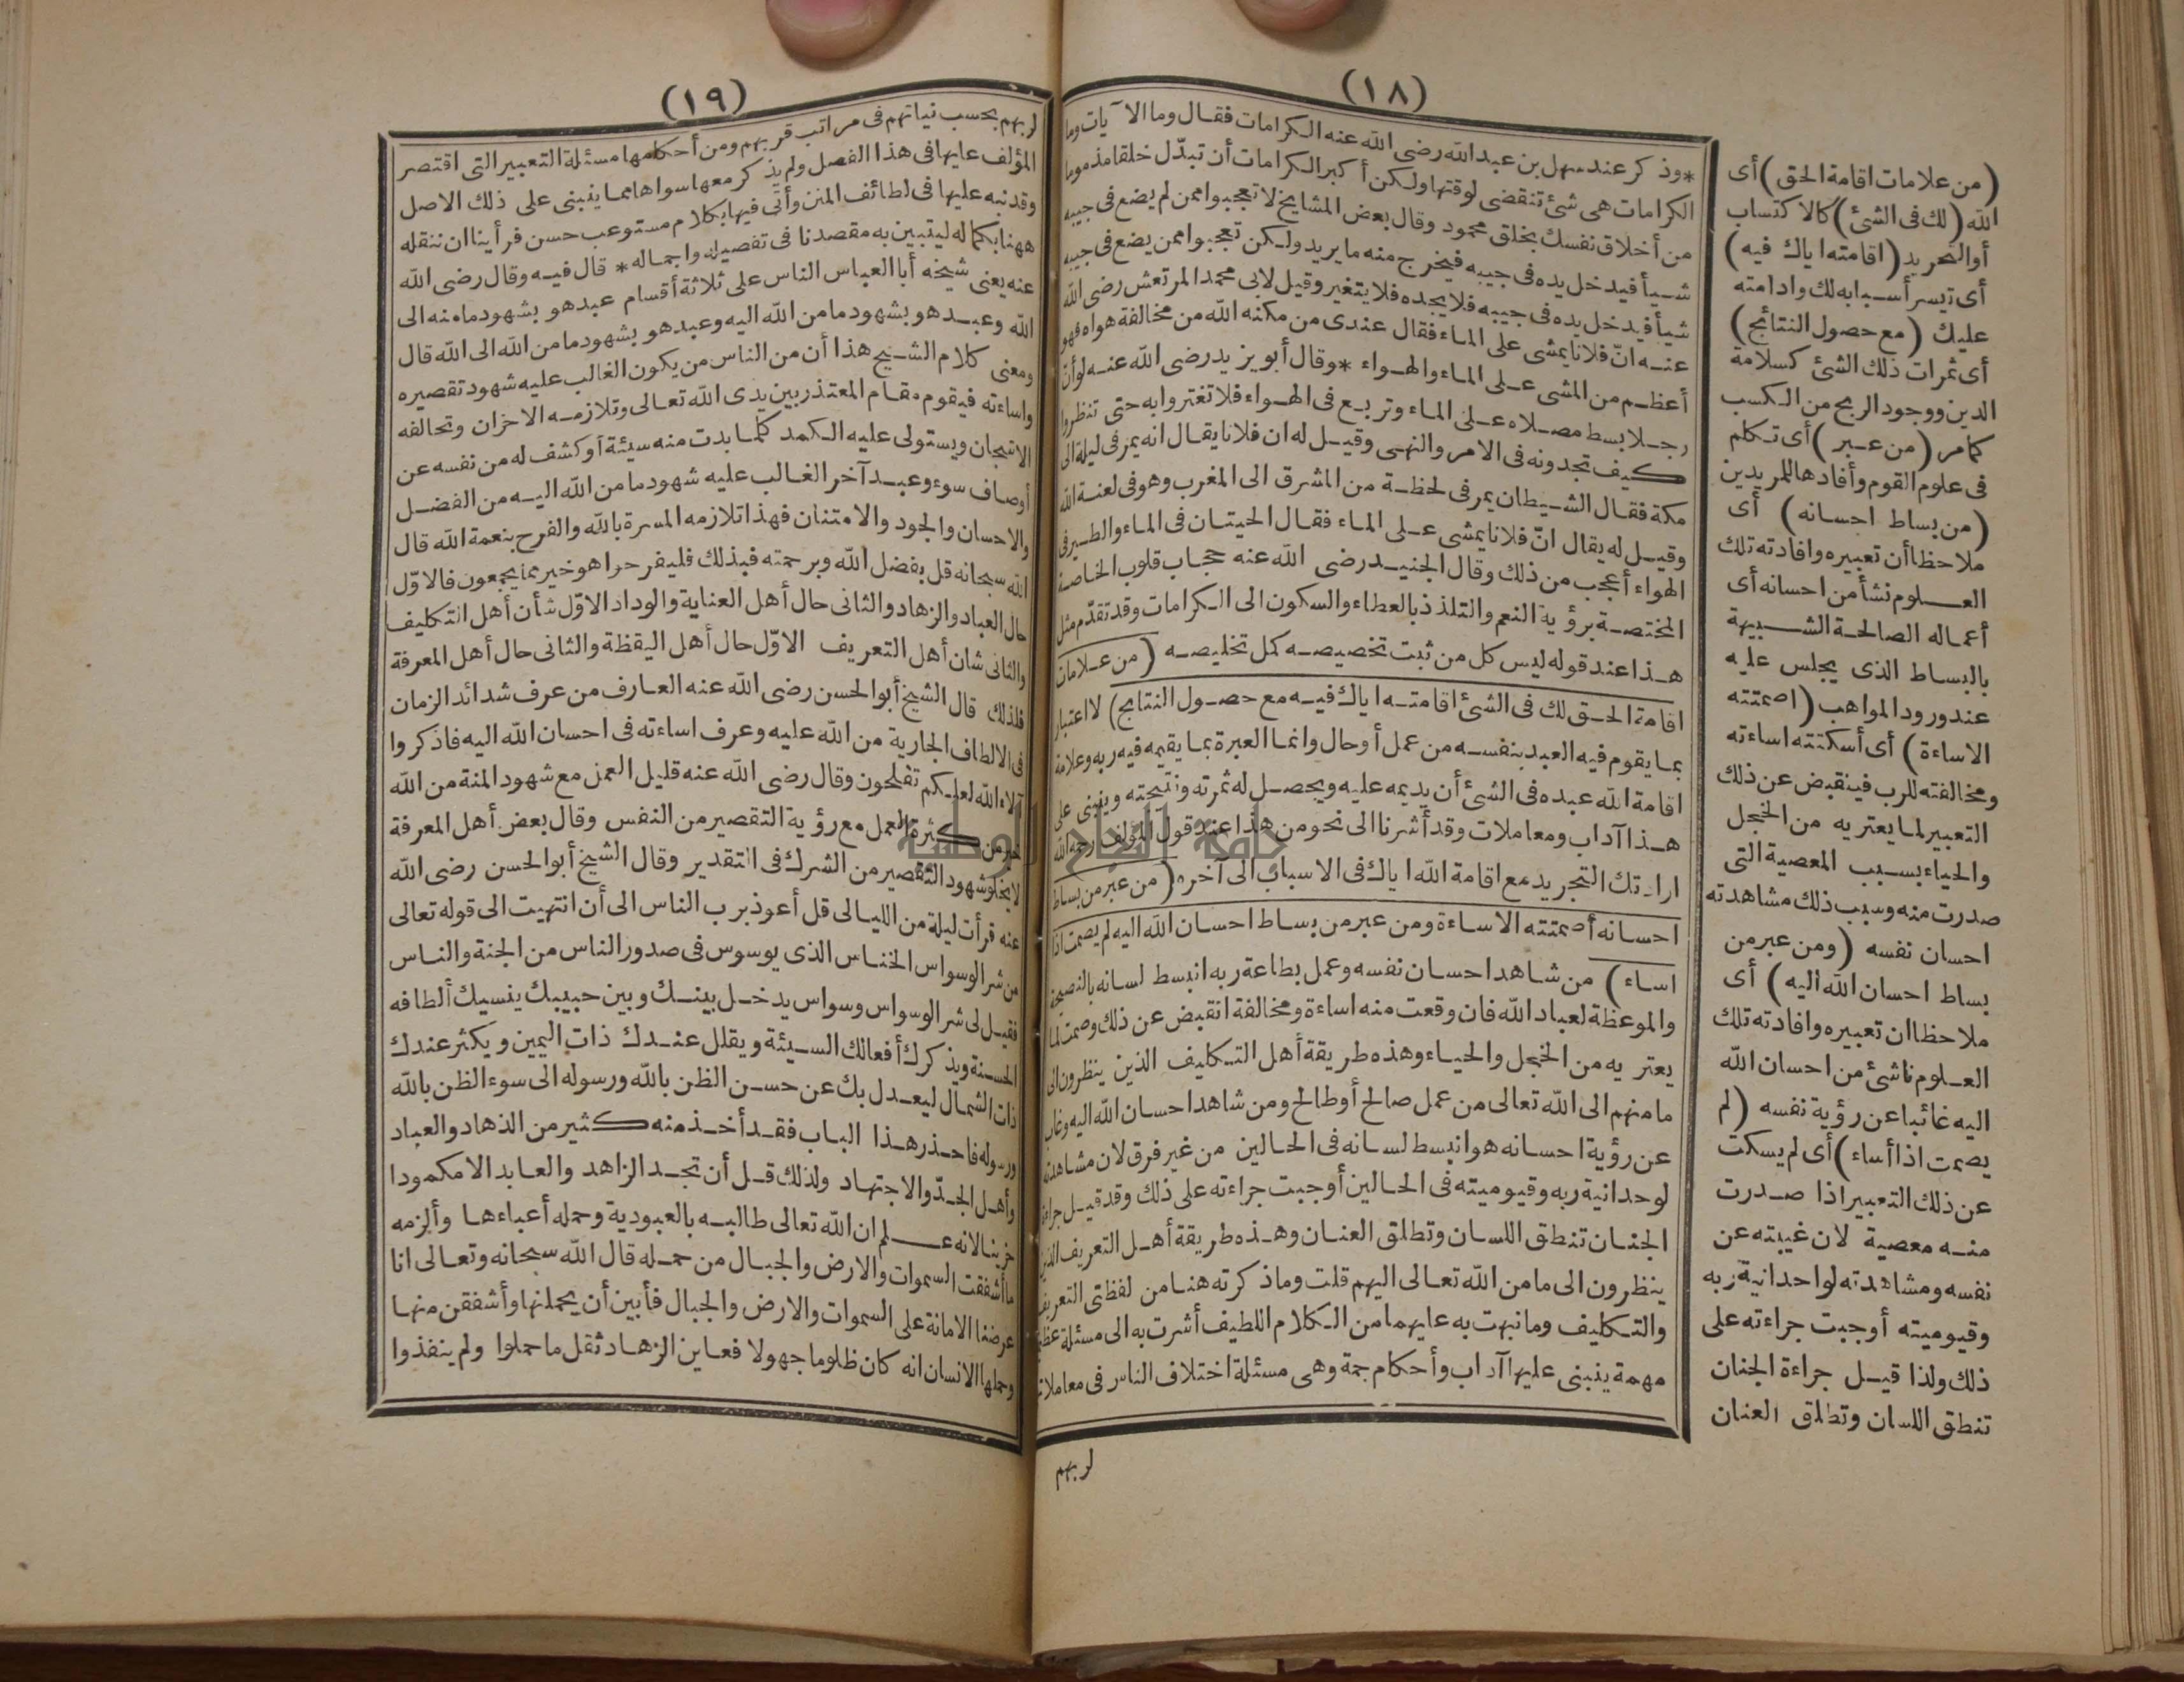 (١٨)
*وذكر عند سهل بن عبد الله رضى الله عنه الكرامات فقال وما الآيات وما
الكرامات هى شئ تنقضى لوقتها ولكن أكبر الكرامات أن تبدّل خلقا مذموما
من أخلاق نفسك بخلق محمود وقال بعض المشايخ لا تعجبوا ممن لم يضع فى جيبه
شيأ فيدخل يده فى جيبه فيخرج منه ما يريد ولكن تعجبوا ممن يضع فى جيبه
شيأ فيدخل يده فى جيبه فلا يجده فلا يتغير وقيل لابى محمد المرتعش رضى الله
عنه انّ فلانا يمشى على الماء فقال عندى من مكنه الله من مخالفة هواه فهو
أعظم من المشى على الماء والهواء *وقال أبو يزيد رضى الله عنه لو أن
رجلا بسط مصلاه على الماء وتربع فى الهواء فلا تغتروا به حتى تنظروا
كيف تجدونه فى الامر والنهى وقيل له ان فلانا يقال انه يمر فى ليلة الى
مكة فقال الشيطان يمر فى لحظة من المشرق الى المغرب وهو فى لعنة الله
وقيل له يقال انّ فلانا يمشى على الماء فقال الحيتان فى الماء والطير فى
الهواء أعجب من ذلك وقال الجنيد رضى الله عنه حجاب قلوب الخاصة
المختصة برؤية النعم والتلذذ بالعطاء والسكون الى الكرامات وقد تقدّم مثل
هذا عند قوله ليس كل من ثبت تخصيصه كمل تخليصه (من علامات
اقامة الحق لك فى الشئ اقامته اياك فيه مع حصول النتائج) لا اعتبار
بما يقوم فيه العبد بنفسه من عمل أو حال وانما العبرة بما يقيمه فيه ربه وعلامة
اقامة الله عبده فى الشئ أن يديمه عليه ويحصل له ثمرته ونتيجته وينبنى على
هذا آداب ومعاملات وقد أشرنا الى نحو من هذا عند قول المؤلف رحمه الله
ارادتك التجريد مع اقامة الله اياك فى الاسباب الى آخره (من عبر من بساط
احسانه أصمتته الاساءة ومن عبر من بساط احسان الله اليه لم يصمت اذا
اساء) من شاهد احسان نفسه وعمل بطاعة ربه انبسط لسانه بالنصيحة
والموعظة لعباد الله فان وقعت منه اساءة ومخالفة انقبض عن ذلك وصمت لما
يعتريه من الخجل والحياء وهذه طريقة أهل التكليف الذين ينظرون الى
ما منهم الى الله تعالى من عمل صالح أو طالح ومن شاهد احسان الله اليه وغاب
عن رؤية احسانه هو انبسط لسانه فى الحالين من غير فرق لان مشاهدته
لوحدانية ربه وقيوميته فى الحالين أوجبت جراءته على ذلك وقد قيل جراءة
الجنان تنطق اللسان وتطلق العنان وهذه طريقة أهل التعريف الذين
ينظرون الى ما من الله تعالى اليهم قلت وما ذكرته هنا من لفظتى التعريف
والتكليف وما نبهت به عليهما من الكلام اللطيف أشرت به الى مسئلة عظيمة
مهمة ينبنى عليها آداب وأحكام جمة وهى مسئلة اختلاف الناس فى معاملاتهم
لربهم
(من علامات اقامة الحق) أى
الله (لك فى الشئ) كالاكتساب
أو التجريد (اقامته اياك فيه)
أى تيسر أسبابه لك وادامته
عليك (مع حصول النتائج)
أى ثمرات ذلك الشئ كسلامة
الدين ووجود الربح من الكسب
كما مر (من عبر) أى تكلم
فى علوم القوم وأفادها للمريدين
(من بساط احسانه) أى
ملاحظا أن تعبيره وافادته تلك
العلوم نشأ من احسانه أى
أعماله الصالحة الشبيهة
بالبساط الذى يجلس عليه
عند ورود المواهب (اصمتته
الاساءة) أى أسكتته اساءته
ومخالفته للرب فينقبض عن ذلك
التعبير لما يعتريه من الخجل
والحياء بسبب المعصية التى
صدرت منه وسبب ذلك مشاهدته
احسان نفسه (ومن عبر من
بساط احسان الله اليه) أى
ملاحظا ان تعبيره وافادته تلك
العلوم ناشئ من احسان الله
اليه غائبا عن رؤية نفسه (لم
يصمت اذا أساء) أى لم يسكت
عن ذلك التعبير اذا صدرت
منه معصية لان غيبته عن
نفسه ومشاهدته لواحدانية ربه
وقيوميته أوجبت جراءته على
ذلك ولذا قيل جراءة الجنان
تنطق اللسان وتطلق العنان
(١٩)
لربهم بحسب نياتهم فى مراتب قربهم ومن أحكامها مسئلة التعبير التى اقتصر
المؤلف عليها فى هذا الفصل ولم يذكر معها سواها مما ينبنى على ذلك الاصل
وقد نبه عليها فى لطائف المنن وأتى فيها بكلام مستوعب حسن فرأينا ان ننقله
ههنا بكماله ليتبين به مقصدنا فى تفصيله واجماله* قال فيه وقال رضى الله
عنه يعنى شيخه أبا العباس الناس على ثلاثة أقسام عبد هو بشهود ما منه الى
الله وعبد هو بشهود ما من الله اليه وعبد هو بشهود ما من الله الى الله قال
ومعنى كلام الشيخ هذا أن من الناس من يكون الغالب عليه شهود تقصيره
واساءته فيقوم مقام المعتذر بين يدى الله تعالى وتلازمه الاحزان وتحالفه
الاشجان ويستولى عليه الكمد كلما بدت منه سيئة أو كشف له من نفسه عن
أوصاف سوء وعبد آخر الغالب عليه شهود ما من الله اليه من الفضل
والاحسان والجود والامتنان فهذا تلازمه المسرة بالله والفرح بنعمة الله قال
الله سبحانه قل بفضل الله وبرحمته فبذلك فليفرحوا هو خير مما يجمعون فالاوّل
حال العباد والزهاد والثانى حال أهل العناية والوداد الاوّل شأن أهل التكليف
والثانى شان أهل التعريف الاوّل حال أهل اليقظة والثانى حال أهل المعرفة
فلذلك قال الشيخ أبو الحسن رضى الله عنه العارف من عرف شدائد الزمان
فى الالطاف الجارية من الله عليه وعرف اساءته فى احسان الله اليه فاذكروا
آلاء الله لعلكم تفلحون وقال رضى الله عنه قليل العمل مع شهود المنة من الله
خير من كثرة العمل مع رؤية التقصير من النفس وقال بعض أهل المعرفة
لا يخلو شهود التقصير من الشرك فى التقدير وقال الشيخ أبو الحسن رضى الله
عنه قرأت ليلة من الليالى قل أعوذ برب الناس الى أن انتهيت الى قوله تعالى
من شر الوسواس الخناس الذى يوسوس فى صدور الناس من الجنة والناس
فقيل لى شر الوسواس وسواس يدخل بينك وبين حبيبك ينسيك ألطافه
الحسنة ويذكرك أفعالك السيئة ويقلل عندك ذات اليمين ويكثر عندك
ذات الشمال ليعدل بك عن حسن الظن بالله ورسوله الى سوء الظن بالله
ورسوله فاحذر هذا الباب فقد أخذ منه كثير من الذهاد والعباد
وأهل الجدّ والاجتهاد ولذلك قل أن تجد الزاهد والعابد الا مكمودا
حزينا لانه علم ان الله تعالى طالبه بالعبودية وحمله أعباءها وألزمه
ما أشفقت السموات والارض والجبال من حمله قال الله سبحانه وتعالى انا
عرضنا الامانة على السموات والارض والجبال فأبين أن يحملنها وأشفقن منها
وحملها الانسان انه كان ظلوما جهولا فعاين الزهاد ثقل ما حملوا ولم ينفذوا